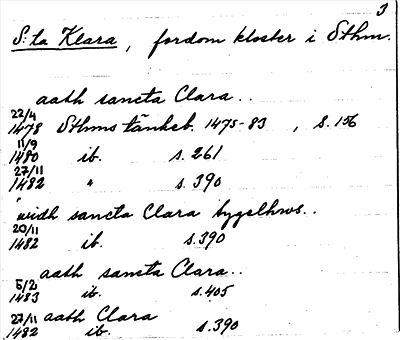 3
S:ta Klara, fordom kloster i Sthm.
aath sancta Clara..
22/4
1478 Sthms tänkeb. 1475-83, s. 156
11/9
1480 ib. s. 261
27/11
1482 " s. 390
widh sancta Clara tygelhws..
20/11
1482 ib. s. 390
aath sancta Clara..
5/2
1483 ib. s. 405
27/11 aath Clara
1482 ib. s. 390